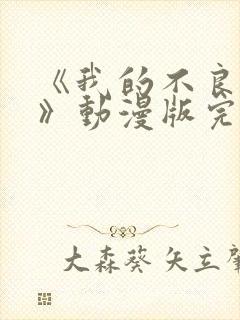 《我的不良
》動漫版完
大森葵 矢立肇